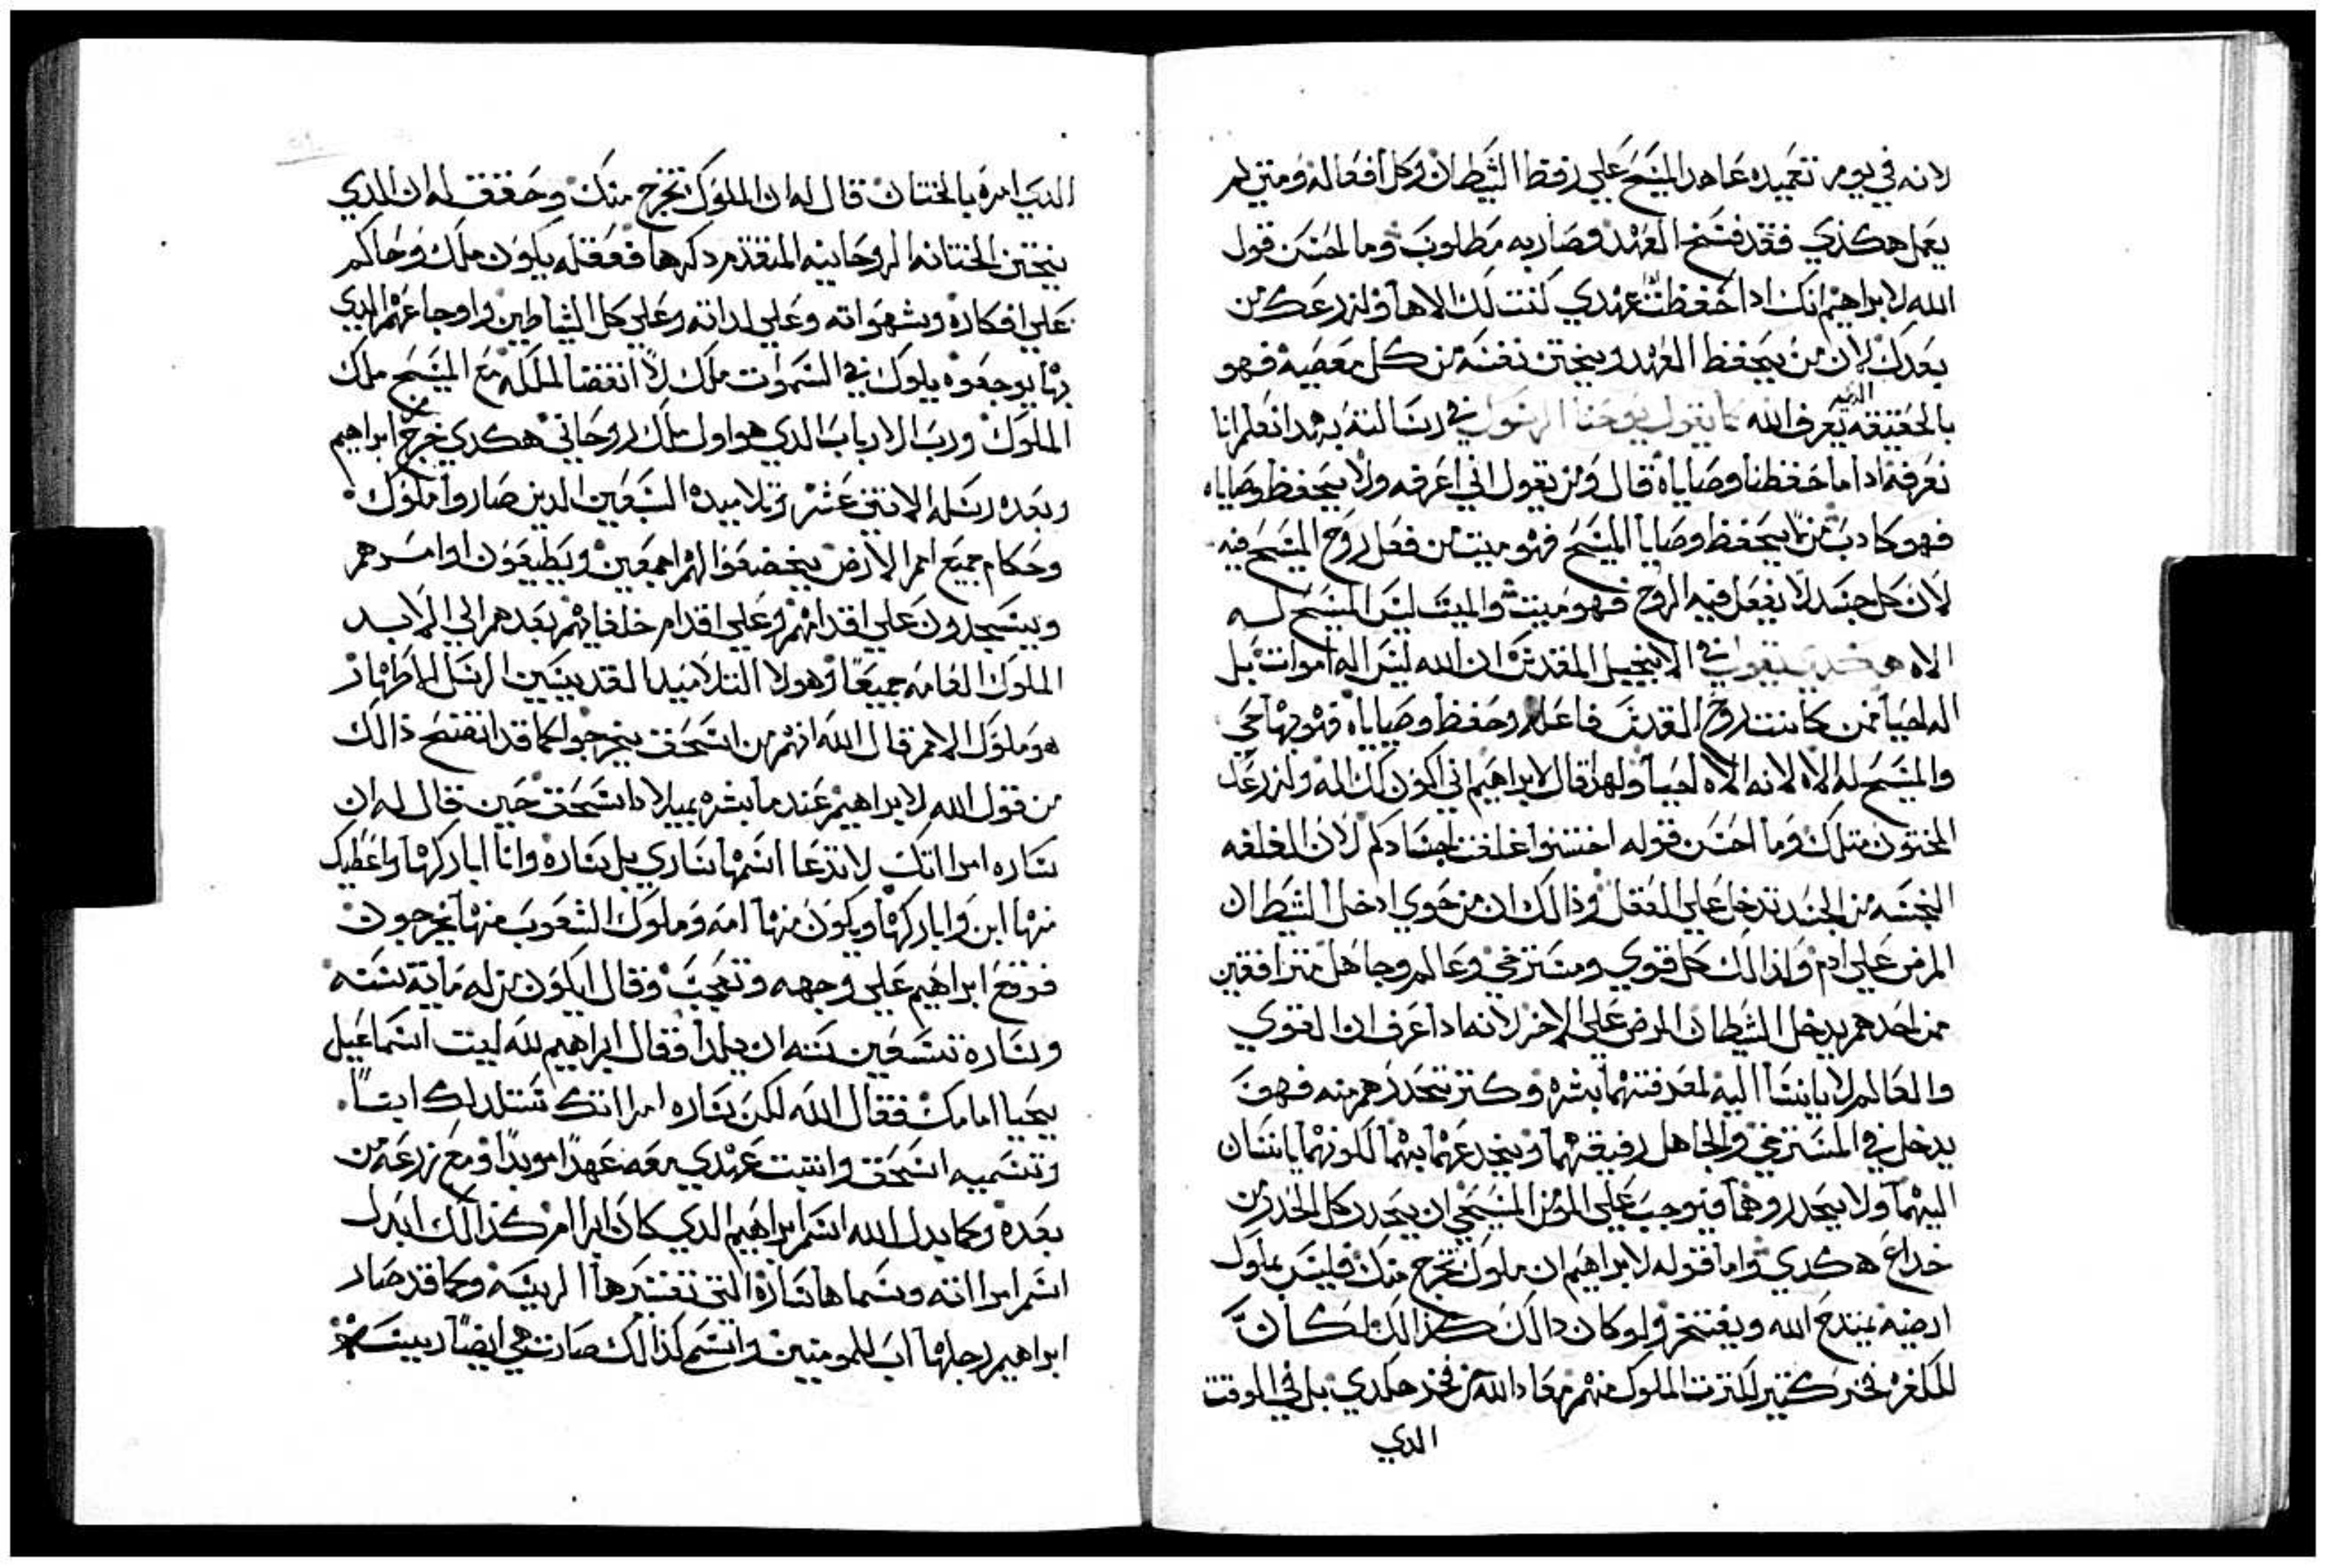 لانه في يوم تعميده عاهد المسيح علي رفظ الشيطان وكل افعاله ومتي لم
يعمل هكذي فقد فسخ العهد وصار به مطلوب وما احسن قول
الله لابراهيم انك ادا حفظت عهدي كنت لك الاها ولزرعك من
بعدك لان من يحفظ العهد ويختن نفسه من كل معصيه فهو
بالحقيقه الدي يعرف الله كما يقول يوحنا الرسول في رسالته بهدا نعلم اننا
نعرفه ادا ما حفظنا وصاياه قال ومن يقول اني اعرفه ولا يحفظ وصاياه
فهو كادب من لا يحفظ وصايا المسيح فهو ميت من فعل روح المسيح فيه
لان كل جسد لا يفعل فيه الروح فهو ميت والميت ليس المسيح له
الاه هكدي يقول في الانجيل المقدس ان الله ليس اله اموات بل
اله احيا فمن كانت روح القدس فاعله وحفظ وصاياه فهو بها حي
والمسيح له الاه لانه الاه احيا ولهدا قال لابراهيم اني اكون لك اله ولزرعك
المختون متلك وما احسن قوله اختتنوا غلفت اجسادكم لان الغلفه
النجسه من الجسد تدخل علي العقل وذالك ان من حوي ادخل الشيطان
المرض علي ادم ولذالك كل قوي ومسترخي وعالم وجاهل مترافقين
من احدهم يدخل الشيطان المرض علي الاخر لانه ادا عرف ان القوي
والعالم لا يانسا اليه لمعرفتهما بشره وكتر تحدرهم منه فهو
يدخل في المسترخي والجاهل رفيقهما ويخدعهما بهما لكونهما يانسان
اليهما ولا يحدروهما فيوجب علي المومن المسيحي ان يحدر كل الحدر من
خداع هكدي واما قوله لابراهيم ان ملوك تخرج منك فليس بملوك
ارضيه يمتدح الله ويفتخر ولو كان دالك كذالك لكان
للكفره فخر كتير لكترت الملوك منهم معاد الله من فخر هكدي بل في الوقت
الدي
الدي امره بالختان قال له ان الملوك تخرج منك وحقق له ان الدي
يختتن الختانه الروحانيه المتقدم دكرها فعقله يكون ملك وحاكم
علي افكاره وشهواته وعلي لداته وعلي كل الشياطين واوجاعهم الدي
بها يوجعوه يلوك في السموات ملك لا انقضا لملكه مع المسيح ملك
الملوك ورب الارباب الدي هو اول ملك روحاني هكدي خرج ابراهيم
وبعده رسله الاتني عشر وتلاميده السبعين الدين صاروا ملوك
وحكام جميع امم الارض يخضعوا لهم اجمعين ويطيعون اوامرهم
ويسجدون علي اقدامهم وعلي اقدام خلفايهم بعدهم الي الابد
الملوك العامه جميعا وهولا التلاميد القديسين الرسل الاطهار
هو ملوك الامم قال الله انهم من اسحق يخرجوا كما قد انفتح ذالك
من قول الله لابراهيم عندما بشره بميلاد اسحق حين قال له ان
ساره امراتك لا تدعا اسمها ساري بل ساره وانا اباركها واعطيك
منها ابن واباركها ويكون منها امه وملوك الشعوب منها يخرجون
فوقع ابراهيم علي وجهه وتعجب وقال ايكون من له ماية سنه
وساره تسعين سنه ان يلدا فقال ابراهيم لله ليت اسماعيل
يحيا امامك فقال الله لكن ساره امراتك ستلد لك ابنا
وتسميه اسحق واتبت عهدي معه عهدا موبدا ومع زرعه من
بعده وكما بدل الله اسم ابراهيم الدي كان ابرام كذالك ابدل
اسم امراته وسماها ساره التي تفسيرها الريسه وكما قد صار
ابراهيم رجلها اب للمومنين واتسم كذالك صارت هي ايضا رييسه